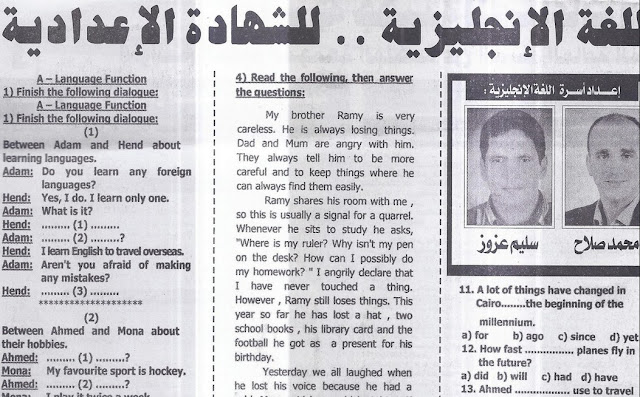 للغة الإنجليزية .. للشهادة الإعدادية
A – Language Function
1) Finish the following dialogue:
A – Language Function
1) Finish the following dialogue:
(1)
Between Adam and Hend about
learning languages.
Adam: Do you learn any foreign
languages?
Hend: Yes, I do. I learn only one.
Adam: What is it?
Hend: ......... (1) .........
Adam: ......... (2) .........?
Hend: I learn English to travel overseas.
Adam: Aren't you afraid of making
any mistakes?
Hend: ......... (3) .........
********************
(2)
Between Ahmed and Mona about
their hobbies.
Ahmed: ......... (1) .........?
Mona: My favourite sport is hockey.
Ahmed: ......... (2) .........?
Mona: I play it twice a week.
4) Read the following, then answer
the questions:
My brother Ramy is very
careless. He is always losing things.
Dad and Mum are angry with him.
They always tell him to be more
careful and to keep things where he
can always find them easily.
Ramy shares his room with me ,
so this is usually a signal for a quarrel.
Whenever he sits to study he asks,
"Where is my ruler? Why isn't my pen
on the desk? How can I possibly do
my homework? " I angrily declare that
I have never touched a thing.
However , Ramy still loses things. This
year so far he has lost a hat , two
school books , his library card and the
football he got as a present for his
birthday.
Yesterday we all laughed when
he lost his voice because he had a
إعداد أسرة اللغة الإنجليزية :
محمد صلاح
سليم عزوز
11. A lot of things have changed in
Cairo........the beginning of the
millennium.
a) for b) ago c) since d) yet
12. How fast ................ planes fly in
the future?
a) did b) will c) had d) have
13. Ahmed ................ use to travel